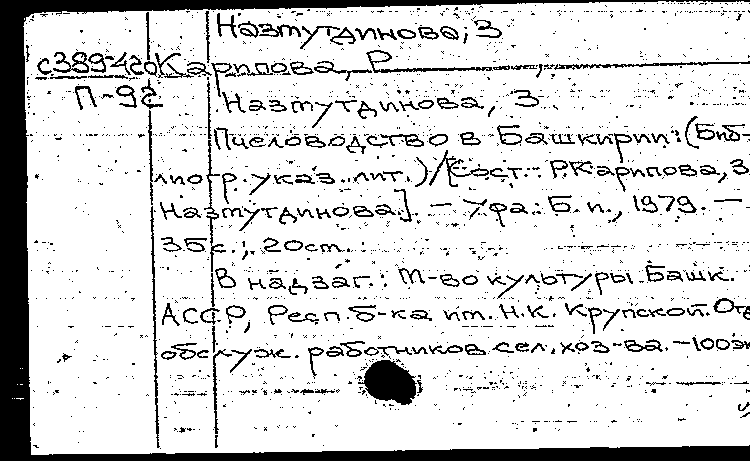 Назмутдинова, З
с389-420 Карипова, Р
П-92 Назмутдинова, З
Пчеловодство в Башкирии: (Биб-
лиогр. указ. лит.)/[Сост.: Р.Карипова, З.
Назмутдинова]. — Уфа: Б. и., 1979. —
35с.; 20см.
В надзаг.: М-во культуры Башк.
АССР, Респ. б-ка им. Н.К. Крупской. Отд.
обслуж. работников сел. хоз-ва. — 100эк